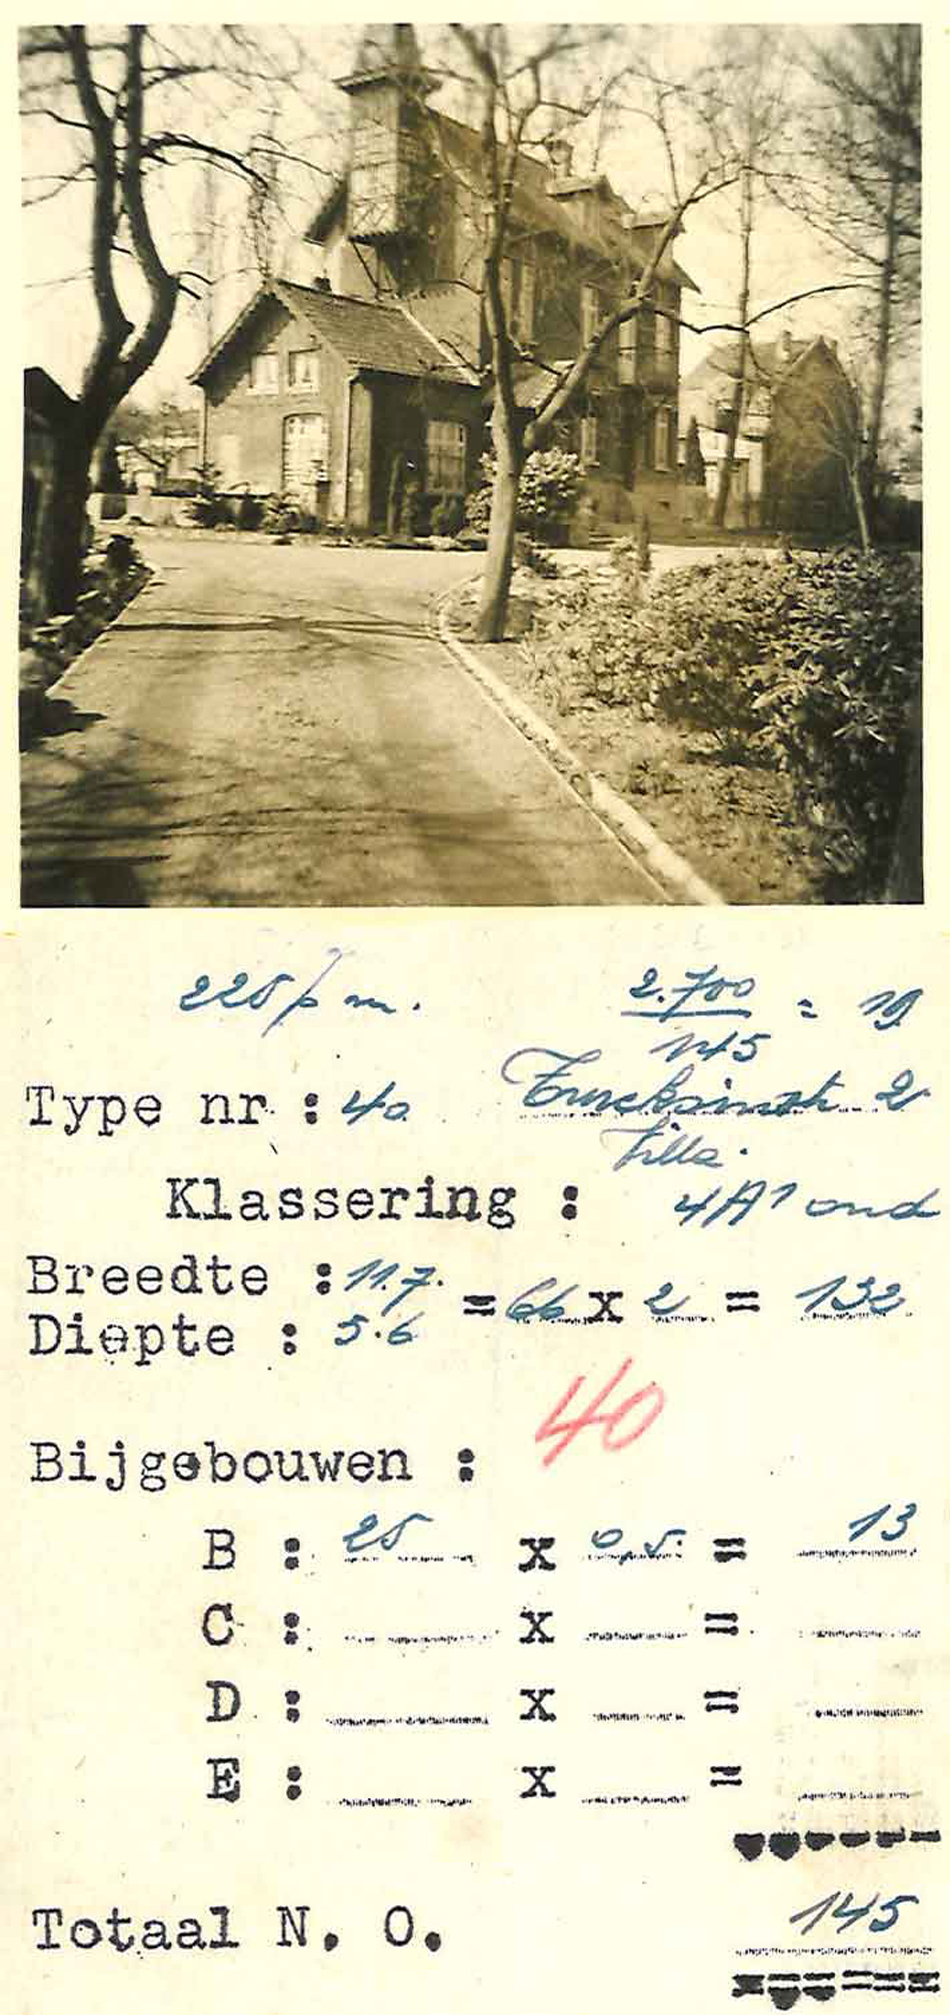 225 p m. 2.700 / 145 = 19
Type nr : 40. Trucksinstr. 2
Villa.
Klassering : 4A1 ond
Breedte : 11.7.
= 66 x 2 = 132
Diepte : 5.6
40
Bijgebouwen :
B : 25 x 0,5. = 13
C : x =
D : x =
E : x =
Totaal N. O. 145